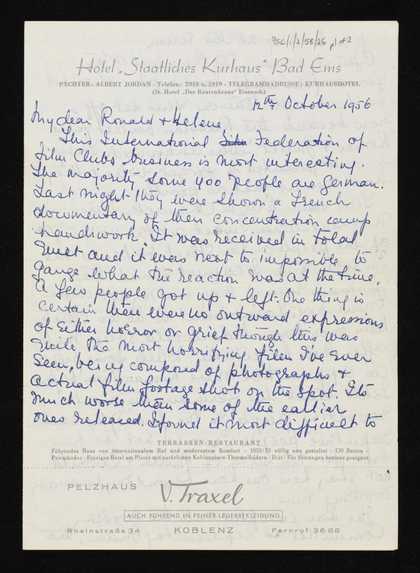 BSC/1/2/58/25 p1 of 2
Hotel „Staatliches Kurhaus" Bad Ems
PÄCHTER: ALBERT JORDAN - Telefon: 2918 u. 2919 - TELEGRAMMADRESSE: KURHAUSHOTEL
12th October 1956
My dear Ronald & Helene,
This International Federation of
Film Clubs business is most interesting.
The majority some 400 people are German.
Last night they were shown a French
documentary of their concentration camp
handiwork. It was received in total
quiet and it was next to impossible to
gauge what the reaction was at the time.
A few people got up & left. One thing is
certain there were no outward expressions
of either horror or grief though this was
quite the most horrifying film I've ever
seen, being composed of photographs &
actual film footage shot on the spot. Its
much worse than some of the earlier
ones released. I found it most difficult to
TERRASSEN-RESTAURANT
Führendes Haus von internationalem Ruf und modernstem Komfort - 1952/53 völlig neu gestaltet - 130 Betten -
PELZHAUS
V. Traxel
AUCH FÜHREND IN FEINER LEDERBEKLEIDUNG
Rheinstraße 34 KOBLENZ Fernruf 3666